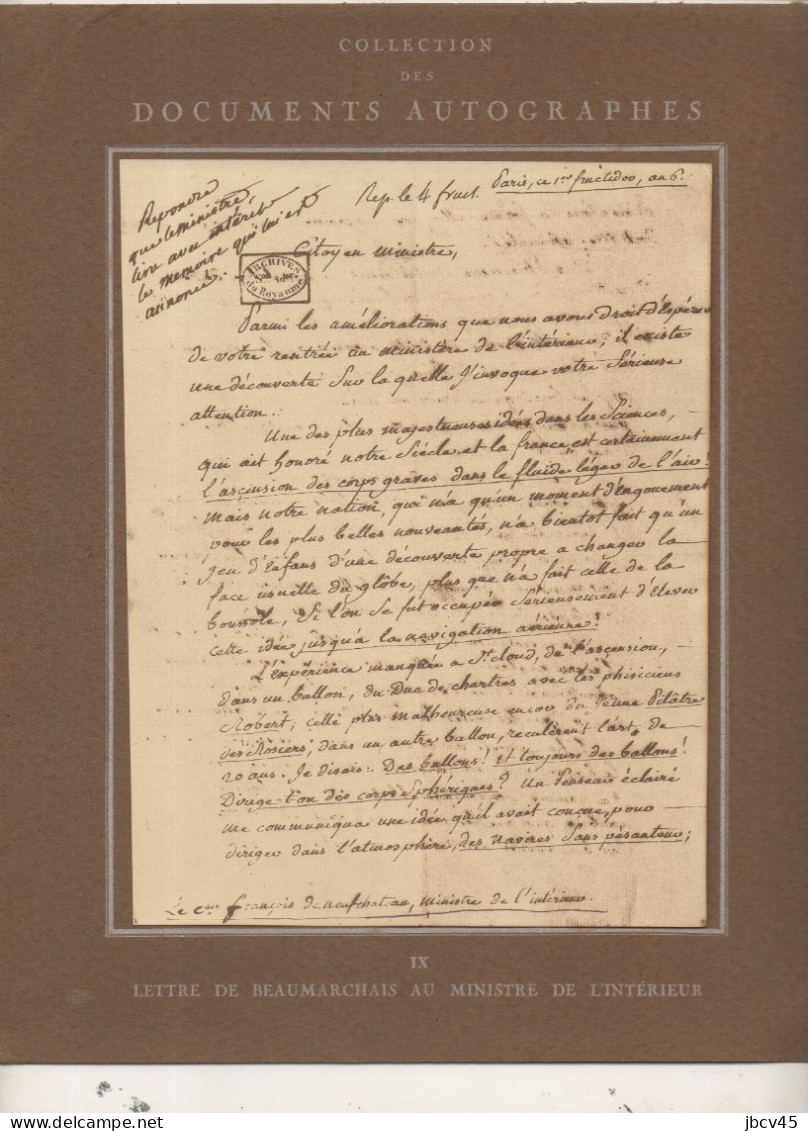 COLLECTION
DES
DOCUMENTS AUTOGRAPHES
Repondre
que le ministre
lira avec intérêt
le memoire qui lui est
annoncé.
Rep. le 4 fruct.
Paris, ce 1er fructidor, an 6.
ARCHIVES
du Royaume
Citoyen ministre,
Parmi les améliorations que nous avons droit d'Espérer
de votre rentrée au ministère de l'intérieur; il existe
une découverte Sur la quelle J'invoque votre Sérieuse
attention.
Une des plus majestueuses idées dans les Sciences,
qui ait honoré notre Siécle et la france, est certainement
l'asçension des corps graves dans le fluide léger de l'air!
mais notre nation, qui n'a qu'un moment d'engouement
pour les plus belles nouveautés, n'a bientot fait qu'un
jeu d'Enfans d'une découverte propre a changer la
face usuelle du glôbe, plus que n'a fait celle de la
boussole, Si l'on Se fut occupé Sérieusement d'Elever
cette idée jusqu'à la navigation aërienne!
L'expérience manquée a St. cloud, de l'ascension,
dans un ballon, du Duc de chartres avec les phisiciens
Robert; celle plus malheureuse encor du Jeune Pilâtre
des Rosiers, dans un autre ballon, reculèrent l'art de
20 ans. Je disais: Des ballons! et toujours des ballons!
Dirige-t'on des corps Sphériques? Un Penseur éclairé
me communiqua une idée qu'il avait conçue, pour
diriger dans l'atmosphère, des navires Sans pésanteur;
Le cen françois de neufchateau, ministre de l'intérieur.
IX
LETTRE DE BEAUMARCHAIS AU MINISTRE DE L'INTÉRIEUR
delcampe.net
jbcv45